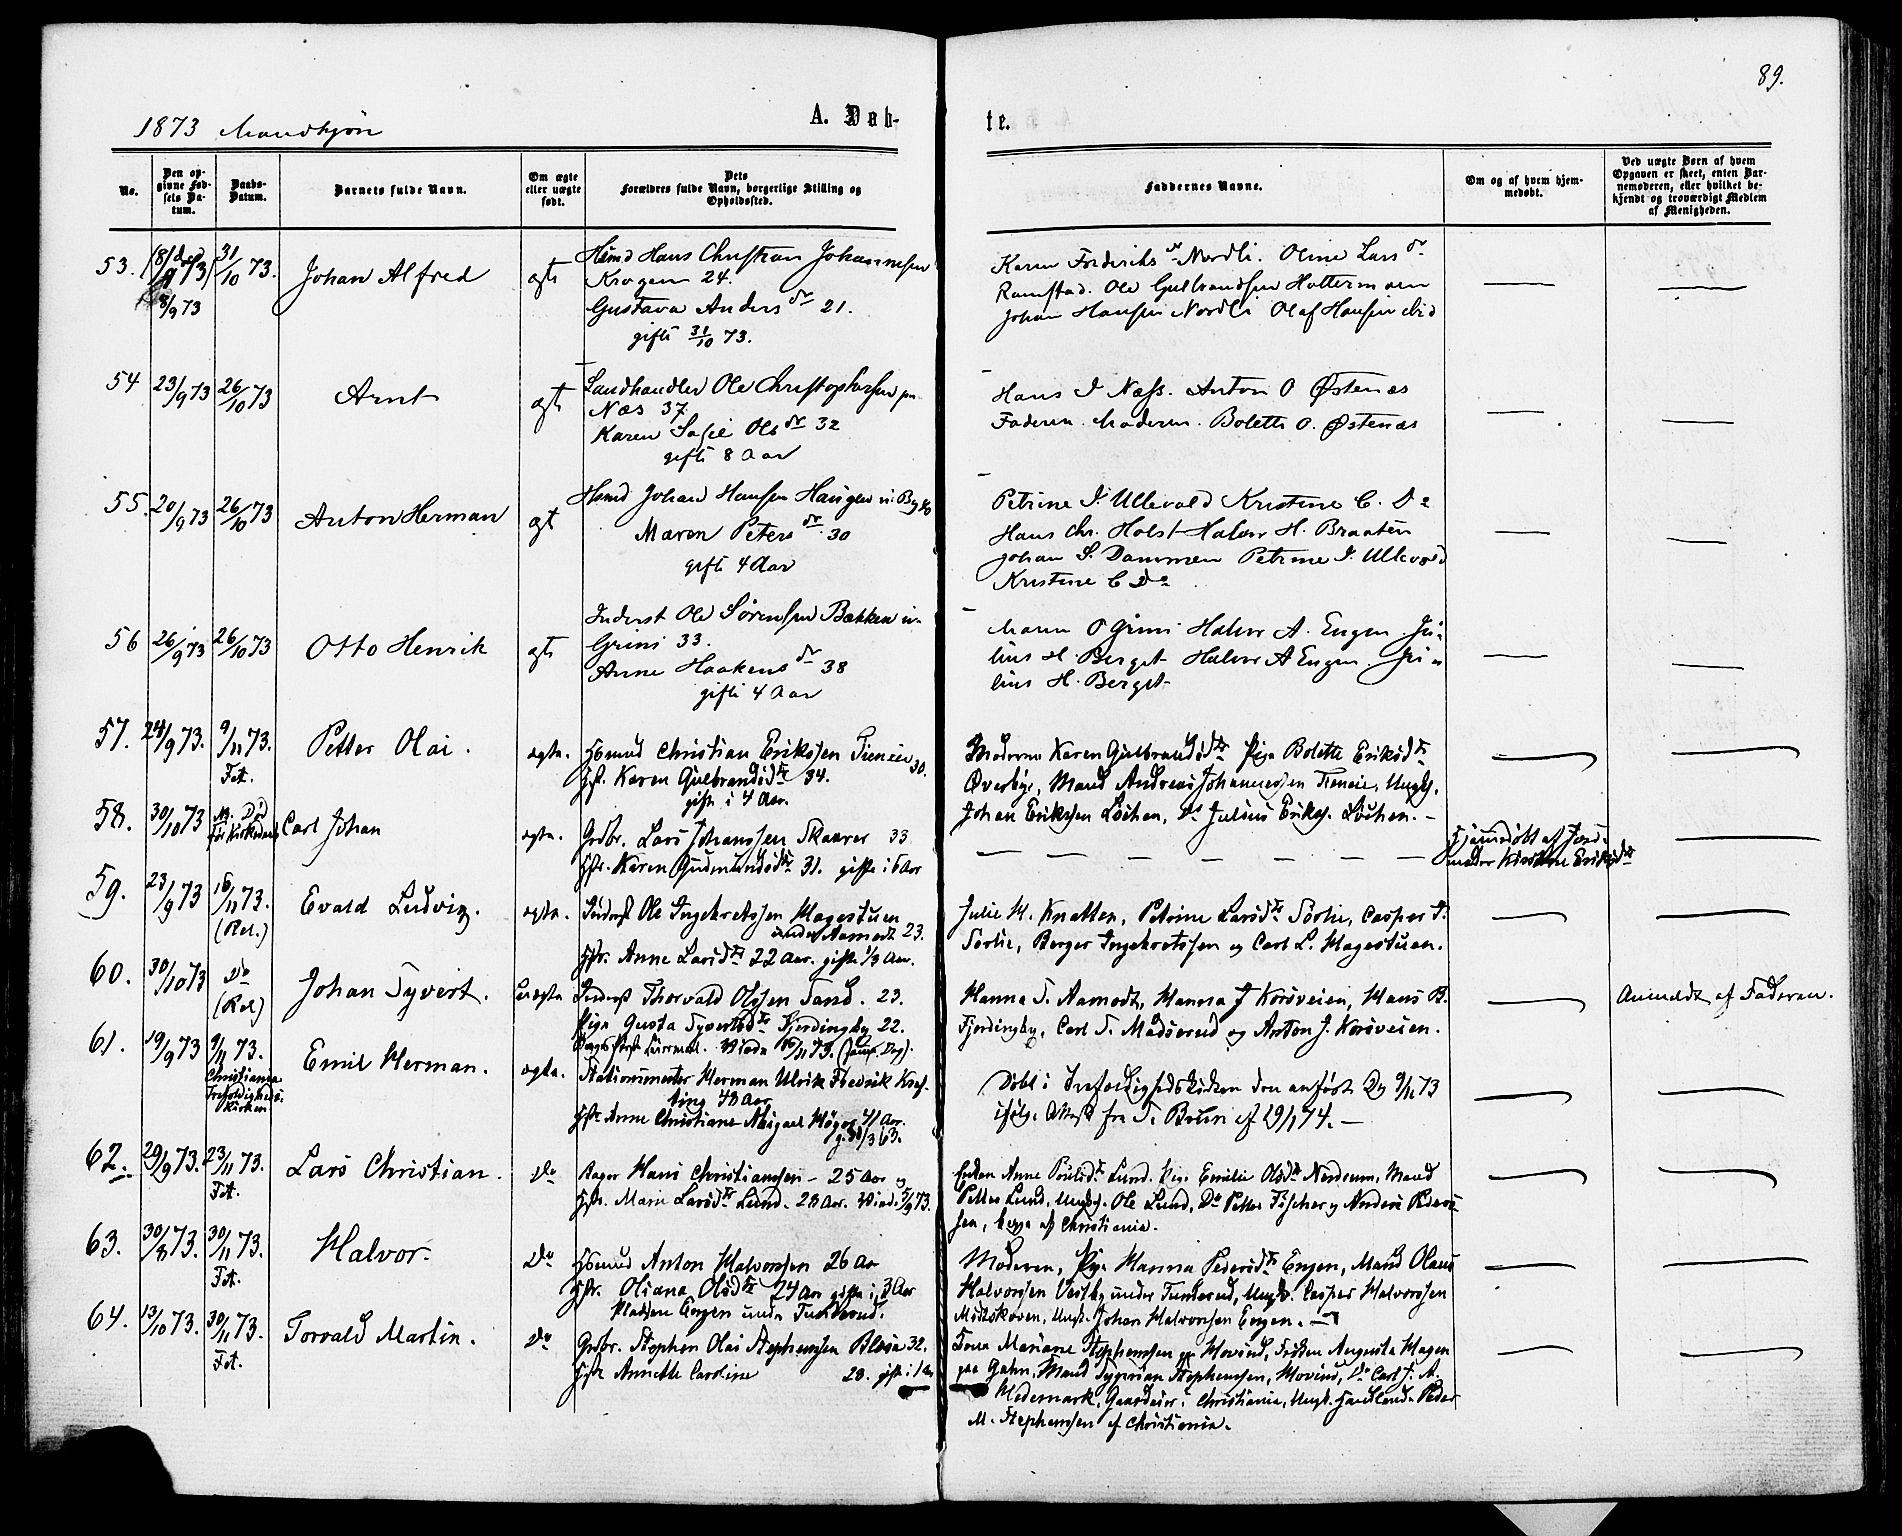 89.
1873 Mandkjøn
A. Døbte.
No.
Den opgivne Fødsels Datum.
Daabs-Datum.
Barnets fulde Navn.
Om ægte eller uægte født.
Dets Forældres fulde Navn, borgerlige Stilling og Opholdssted.
Faddernes Navne.
Om og af hvem hjemmedøbt.
Ved uægte Børn af hvem Opgaven er skeet, enten Barnemoderen, eller hvilket bekjendt og troværdigt Medlem af Menigheden.
53. 8/9 73 31/10 73. Johan Alfred ægte
Hsmd Hans Christian Johannesen
Krogen 24.
Gustava Anders dr 21.
gifte 31/10 73.
Karen Frederiks dr Nordli. Oline Lars dr
Ramstad. Ole Gulbrandsen Holtermoen
Johan Hansen Nordli Olaf Hansen ibid
54 23/9 73 26/10 73 Arnt ægte
Landhandler Ole Christophersen
Næs 37
Karen Sofie Ols dr 32
gifte 8 Aar
Hans I Næss. Anton O Østenæs
Faderen. Moderen. Bolette O. Østenæs
55. 20/9 73 26/10 73 Anton Herman ægt
Hsmd Johan Hansen Haugen
Maren Peters dr 30
gifte 4 Aar
Petrine J. Ullevold Kristine C. Do
Hans Chr. Holst Halvor H. Braaten
Johan S. Dammen Petrine J. Ullevold
Kristine C Do
56 26/9 73 26/10 73 Otto Henrik ægte
Inderst Ole Sørensen Bækken u.
Grini 33.
Anne Haakens dr 38
gifte 4 Aar
Maren O Grini Halvor A. Engen. Ju-
lius H. Berget Halvor A Engen. Ju-
lius H. Berget
57. 24/9 73. 9/11 73. Fet. Petter Olai. ægte.
Hsmnd Christian Eriksen Tieneie 30.
Hstr. Karen Gulbrandsdtr 34.
gifte i 4 Aar.
Moderen Karen Gulbrandsdtr Pige Bolette Eriksdtr
Øverbye, Mand Andreas Johannessen Tieneie, Ungk.
Johan Eriksen Løchen, Do Julius Eriks. Løchen. –
58. 30/10 73 Carl Johan ægte.
Grdbr. Lars Johanssen Skaarer 33
Hstr. Karen Gudmundsdtr 31. gifte i 6 Aar
Hjemmedøbt af Jord-
moder Kirstine Eriksdtr
59. 23/9 73 16/11 73. (Rel.) Evald Ludvig. ægte.
Inderst Ole Ingebretssen Hagestuen
under Aamodt 23.
Hstr. Anne Larsdtr 22 Aar. gifte 1/3 Aar.
Julie H. Knatten, Petrine Larsdtr Sørlie, Casper J.
Sørlie, Berger Ingebretssen og Carl L. Hagestuen.
60. 30/10 73 Do (Rel) Johan Syvert. Uægte
Inderst Thorvald Olssen Sand. 23.
Pige Gusta Syvertsdtr Fjerdingby 22.
Hanna T. Aamodt, Hanna J Korsveien, Hans B.
Fjerdingby, Carl T. Madserud og Anton J. Korsveien.
Anmeldt af Faderen.
61. 19/9 73 9/11 73. Christiania Trefoldigheds-Kirken Emil Herman. ægte.
Stationsmester Herman Ulrik Fredrik
48 Aar
Hstr Anne Christiane Abigael Høyer 41 Aar.
g. 31/3 63.
Døbt i Trefoldighedskirken den anført Dag 9/11 73
ifølge Attest fra T. Bruun af 29/1 74. –
62. 29/9 73. 23/11 73. Fet. Lars Christian. Do
Bager Hans Christianssen – 25 Aar og
Hstr. Marie Larsdtr Lund. 28 Aar. Viede 5/9 73.
Enken Anne Poulsdtr Lund. Pige Emilie Olsdtr Nordrum, Mand
Petter Lund, Ungk. Ole Lund, Do Petter Fischer og Anders Peders-
sen, begge af Christiania.
63. 30/8 73. 30/11 73. Fet. Halvor. Do
Hsmnd Anton Halvorssen 26 Aar
Hstr. Oliana Olsdtr 24 Aar gifte i 3 Aar
Pladsen Engen under Tunderud.
Moderen, Pige Hanna Pedersdtr Engen, Mand Olaus
Halvorssen Vestby under Tunderud, Ungk. Casper Halvorssen
Melskoven, Ungk. Johan Halvorssen Engen. –
64. 13/10 73. 30/11 73. Fet. Torvald Martin. Do
Grdbr. Stephen Olai Stephenssen 32.
Hstr Annette Caroline 28. gifte i 1 Aar
Kone Mariane Stephenssen Hovind, Frøken Augusta Hagen
paa Gahn, Mand Syverian Stephenssen, Hovind, Do Carl J. A.
Hedemark, Gaardeier i Christiania, Ungk. Handlende Peder
M. Stephenssen af Christiania.